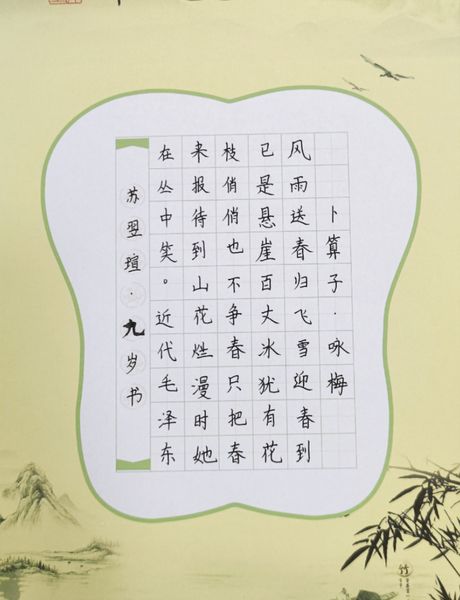 卜算子·咏梅
风雨送春归飞雪迎春到
已是悬崖百丈冰犹有花
枝俏俏也不争春只把春
来报待到山花烂漫时她
在丛中笑。近代毛泽东
苏翌瑄·九岁书